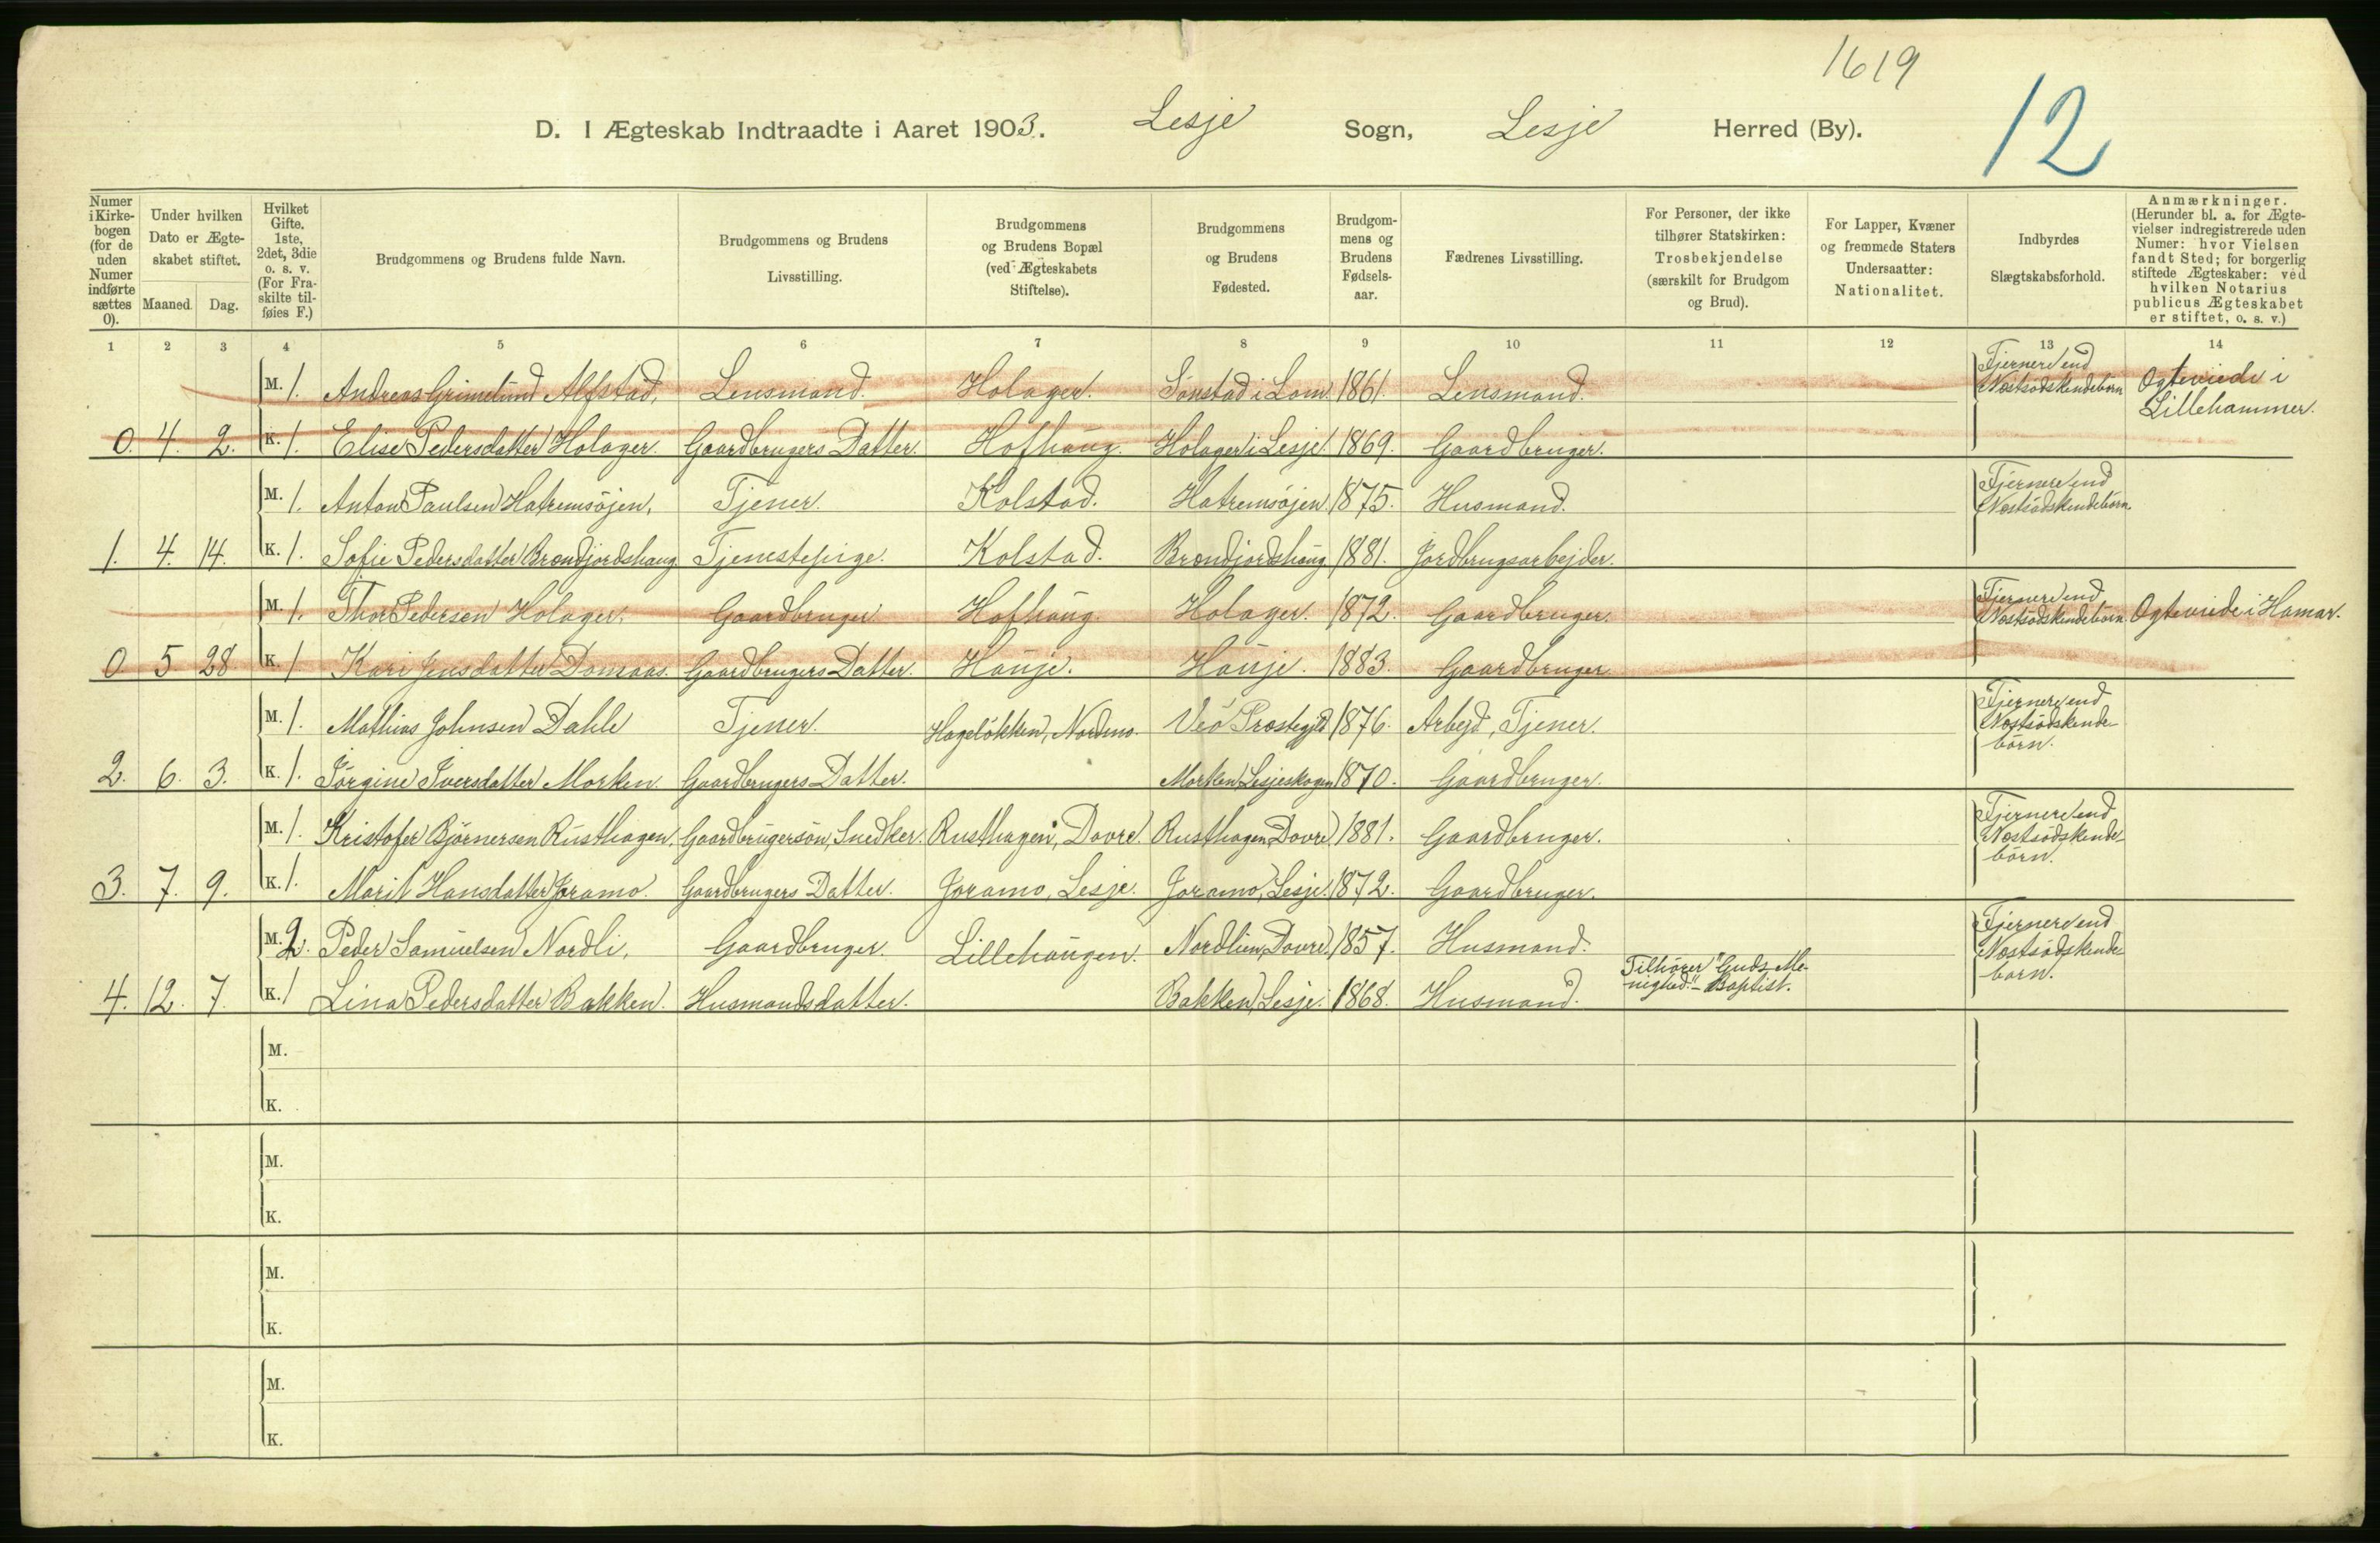 1619
12
D. I Ægteskab Indtraadte i Aaret 1903. Lesje Sogn, Lesje Herred (By).
Numer i Kirke-bogen (for de uden Numer indførte sættes 0).
Under hvilken Dato er Ægte-skabet stiftet.
Maaned. Dag.
Hvilket Gifte. 1ste, 2det, 3die o. s. v. (For Fra-skilte til-føies F.)
Brudgommens og Brudens fulde Navn.
Brudgommens og Brudens Livsstilling.
Brudgommens og Brudens Bopæl (ved Ægteskabets Stiftelse).
Brudgommens og Brudens Fødested.
Brudgom-mens og Brudens Fødsels-aar.
Fædrenes Livsstilling.
For Personer, der ikke tilhører Statskirken: Trosbekjendelse (særskilt for Brudgom og Brud).
For Lapper, Kvæner og fremmede Staters Undersaatter: Nationalitet.
Indbyrdes Slægtskabsforhold.
Anmærkninger. (Herunder bl. a. for Ægte-vielser indregistrerede uden Numer: hvor Vielsen fandt Sted; for borgerlig stiftede Ægteskaber: ved hvilken Notarius publicus Ægteskabet er stiftet, o. s. v.)
1 2 3 4 5 6 7 8 9 10 11 12 13 14
M. 1. Andreas Grimelund Alfstad, Lensmand. Holager. Sönstad i Lom. 1861. Lensmand. Fjernere end Næstsödskendebörn Ogteviede i Lillehammer.
0. 4. 2. K. 1. Elise Pedersdatter Holager. Gaardbrugers Datter. Hofhaug. Holager i Lesje. 1869. Gaardbruger.
M. 1. Anton Paulsen Hatremsöjen, Tjener. Kolstad. Hatremsöjen. 1875. Husmand. Fjernere end Næstsödskendebörn.
1. 4. 14. K. 1. Sofie Pedersdatter Brændjordshaug Tjenestepige. Kolstad. Brændjordshaug 1881. Jordbrugsarbejder.
M. 1. Thor Pedersen Holager. Gaardbruger Hofhaug. Holager. 1872. Gaardbruger. Fjernere end Næstsödskendebörn. Ogteviede i Hamar.
0 5 28 K. 1 Kari Jensdatter Domaas. Gaardbrugers Datter. Hauje. Hauje. 1883. Gaardbruger
M. 1. Mathias Johnsen Dahle Tjener. Hagelökken, Nordmo. Veö Præstegjld 1876. Arbejd, Tjener. Fjernere end Næstsödskende-börn.
2. 6. 3. K. 1. Jörgine Iversdatter Morken. Gaardbrugers Datter. Morken, Lesjeskogen 1870. Gaardbruger.
M. 1. Kristofer Björnersen Rusthagen, Gaardbrugersön, Snedker. Rusthagen, Dovre. Rusthagen, Dovre 1881. Gaardbruger. Fjernere end Næstsödskende-börn.
3. 7. 9. K. 1. Marit Hansdatter Joramo. Gaardbrugers Datter. Joramo, Lesje. Joramo, Lesje. 1872. Gaardbruger.
M. 2. Peder Samuelsen Nordli, Gaardbruger. Lillehaugen. Nordlien, Dovre. 1857. Husmand. Fjernere end Næstsödskende-börn.
4. 12. 7. K. 1 Lina Pedersdatter Bakken. Husmandsdatter. Bakken, Lesje. 1868. Husmand. Tilhører "Guds Me-nighed" - Baptist.
M.
K.
M.
K.
M.
K.
M.
K.